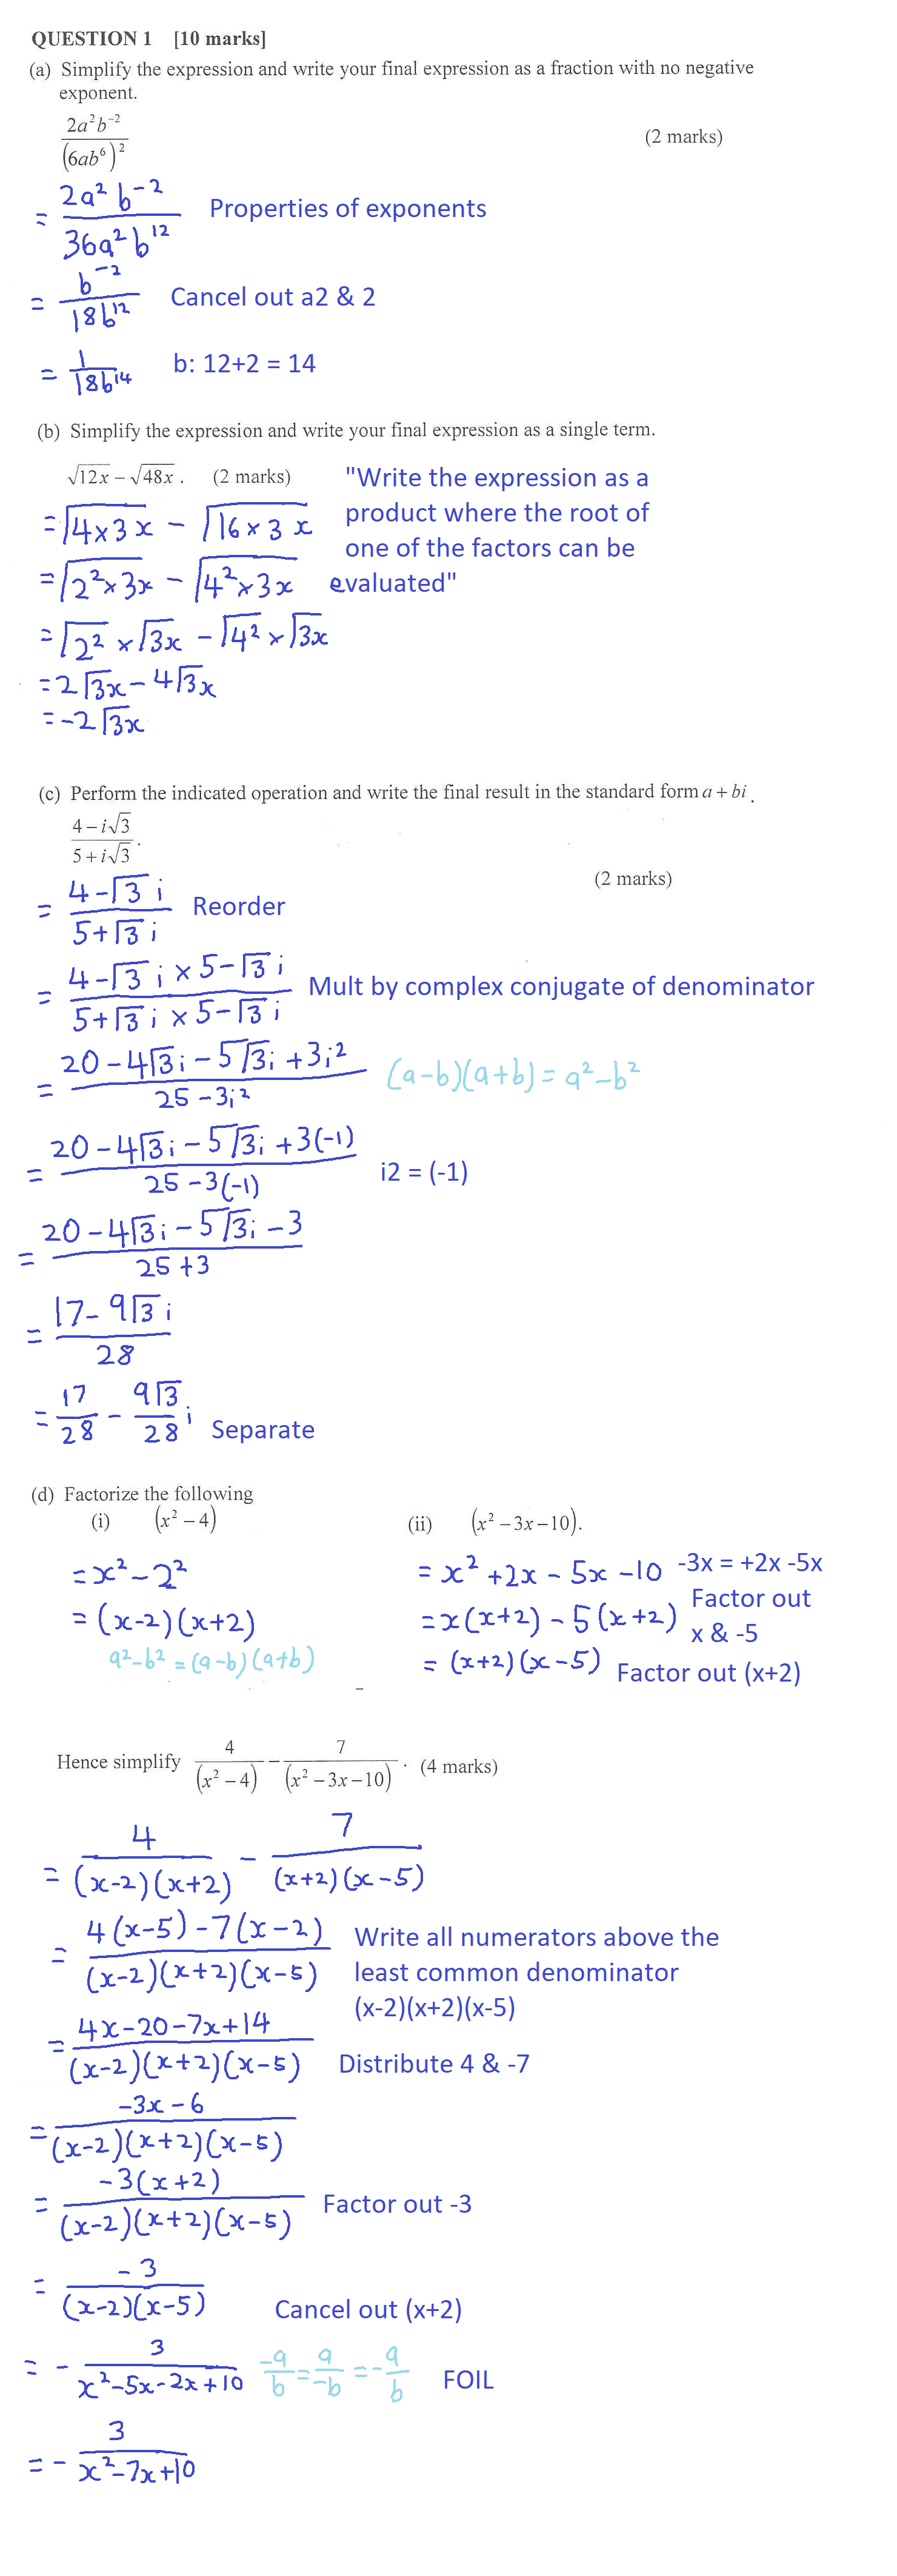 QUESTION 1 [10 marks]
(a) Simplify the expression and write your final expression as a fraction with no negative
exponent.
2a²b⁻² / (6ab⁶)²
(2 marks)
= 2a² b⁻² / 36a² b¹² Properties of exponents
= b⁻² / 18b¹² Cancel out a2 & 2
= 1 / 18b¹⁴ b: 12+2 = 14
(b) Simplify the expression and write your final expression as a single term.
√12x − √48x . (2 marks) "Write the expression as a
= √4×3x − √16×3x product where the root of
one of the factors can be
= √2²×3x − √4²×3x evaluated"
= √2² × √3x − √4² × √3x
= 2√3x − 4√3x
= -2√3x
(c) Perform the indicated operation and write the final result in the standard form a + bi .
4 − i√3 / 5 + i√3 .
(2 marks)
= 4 − √3 i / 5 + √3 i Reorder
= 4 − √3 i × 5 − √3 i / 5 + √3 i × 5 − √3 i Mult by complex conjugate of denominator
= 20 − 4√3i − 5√3i + 3i² / 25 − 3i² (a−b)(a+b) = a²−b²
= 20 − 4√3i − 5√3i + 3(-1) / 25 − 3(-1) i2 = (-1)
= 20 − 4√3i − 5√3i − 3 / 25 + 3
= 17 − 9√3 i / 28
= 17/28 − 9√3/28 i Separate
(d) Factorize the following
(i) (x² − 4) (ii) (x² − 3x − 10).
= x² − 2²
= (x−2)(x+2)
a²−b² = (a−b)(a+b)
= x² + 2x − 5x − 10 -3x = +2x -5x
= x(x+2) − 5(x+2) Factor out
x & -5
= (x+2)(x−5) Factor out (x+2)
Hence simplify 4 / (x² − 4) − 7 / (x² − 3x − 10) . (4 marks)
= 4 / (x−2)(x+2) − 7 / (x+2)(x−5)
= 4(x−5) − 7(x−2) / (x−2)(x+2)(x−5) Write all numerators above the
least common denominator
(x-2)(x+2)(x-5)
= 4x − 20 − 7x + 14 / (x−2)(x+2)(x−5) Distribute 4 & -7
= -3x − 6 / (x−2)(x+2)(x−5)
= -3(x+2) / (x−2)(x+2)(x−5) Factor out -3
= -3 / (x−2)(x−5) Cancel out (x+2)
= − 3 / x²−5x−2x+10 -a/b = a/-b = -a/b FOIL
= − 3 / x²−7x+10